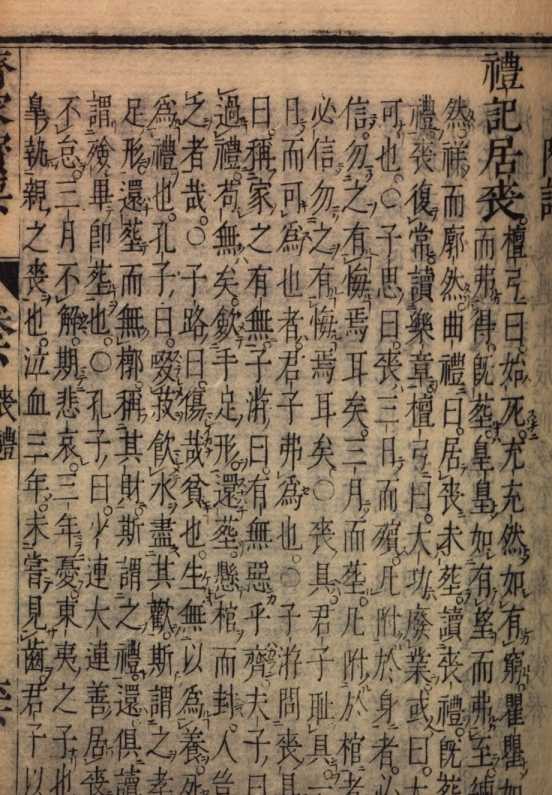 禮記居喪
檀弓曰。始死。充充然如有窮。瞿瞿如
而弗得。既葬。皇皇如有望而弗至。練
然。祥而廓然。曲禮曰。居喪未葬。讀喪禮。既葬
禮。喪復常讀樂章。檀弓曰。大功廢業。或曰。大
可也。○子思曰。喪三日而殯。凡附於身者。必
信。勿之有悔焉耳矣。三月而葬。凡附於棺者
必信勿之有悔焉耳矣。○喪具君子恥具。一
日而可爲也者。君子弗爲也。○子游問喪具
曰。稱家之有無。子游曰。有無惡乎齊。夫子曰
過禮。苟無矣。歛手足形。還葬。懸棺而封。人豈
之者哉。○子路曰。傷哉貧也。生無以爲養。死
爲禮也。孔子曰。啜菽飲水盡其歡。斯謂之孝
足形。還葬而無槨。稱其財。斯謂之禮。還俱讀
謂殯畢卽葬也。○孔子曰。少連大連善居喪
不怠。三月不解。期悲哀。三年憂。東夷之子也
皐執親之喪也。泣血三年。未嘗見齒。君子以
喪禮